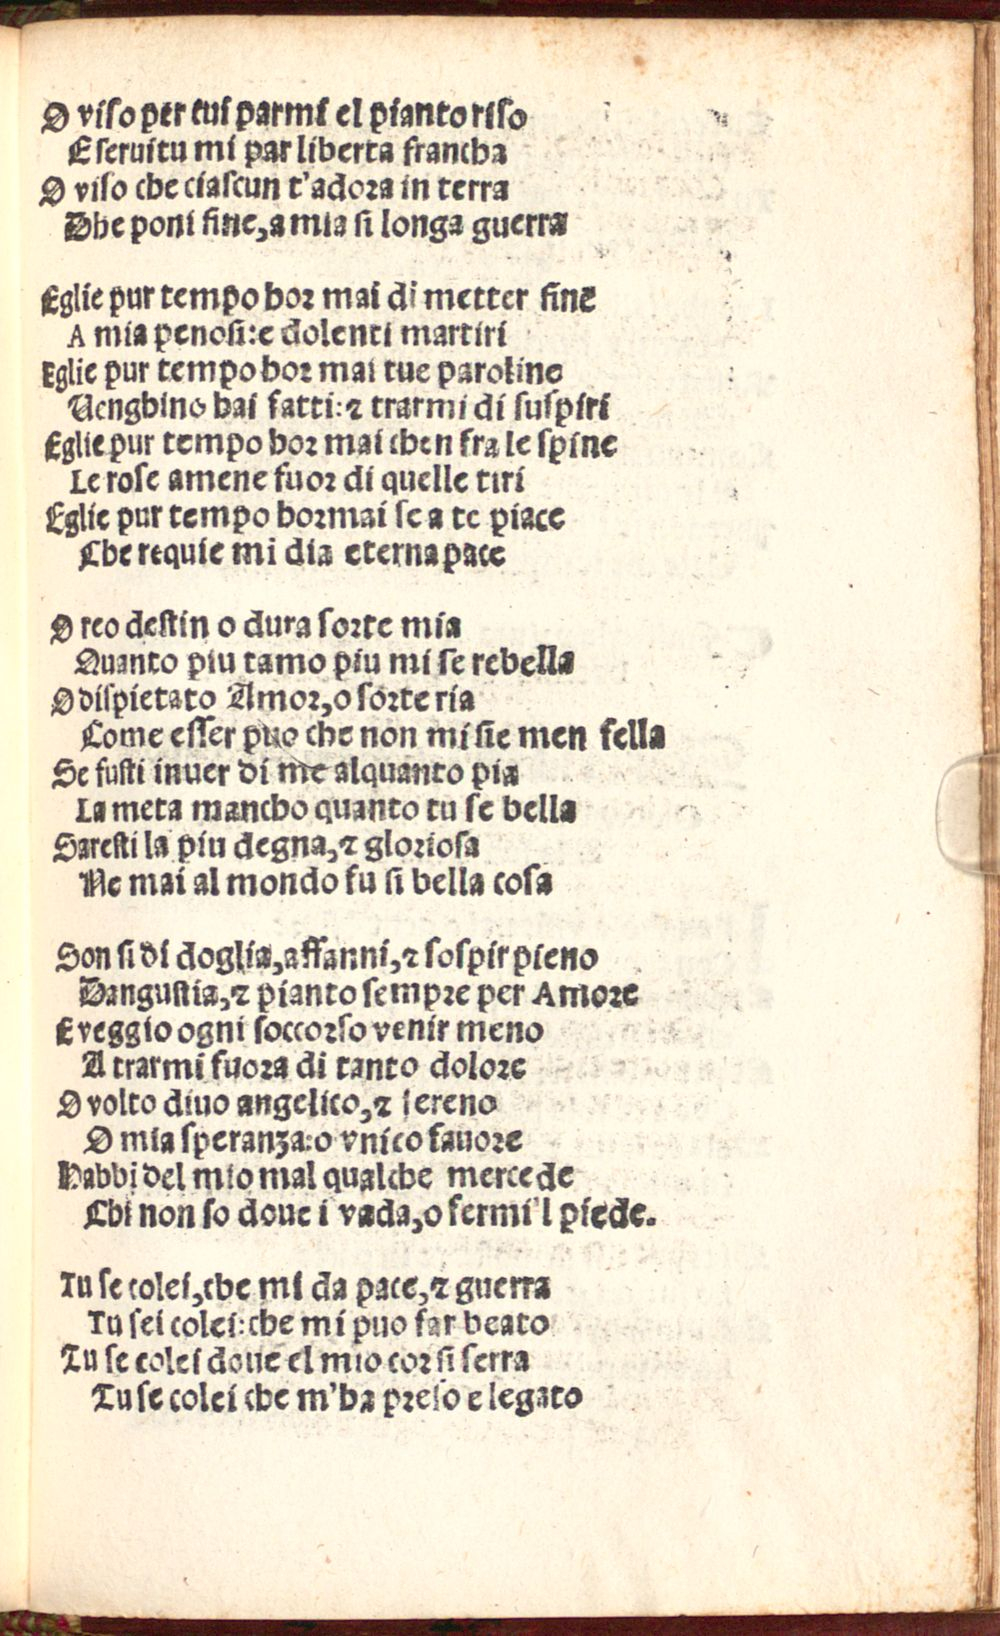 O viso per cui parmi el pianto riso
E seruitu mi par liberta francha
O viso che ciascun t'adora in terra
Dhe poni fine, a mia si longa guerra
Eglie pur tempo hor mai di metter fine
A mia penosi: e dolenti martiri
Eglie pur tempo hor mai tue paroline
Uenghino hai fatti: ⁊ trarmi di suspiri
Eglie pur tempo hor mai chen fra le spine
Le rose amene fuor di quelle tiri
Eglie pur tempo hormai se a te piace
Che requie mi dia eterna pace
O reo destin o dura sorte mia
Quanto piu tamo piu mi se rebella
O dispietato Amor, o sorte ria
Come esser puo che non mi sie men fella
Se fusti inuer di me alquanto pia
La meta mancho quanto tu se bella
Saresti la piu degna, ⁊ gloriosa
Ne mai al mondo fu si bella cosa
Son si di doglia, affanni, ⁊ sospir pieno
Dangustia, ⁊ pianto sempre per Amore
E veggio ogni soccorso venir meno
A trarmi fuora di tanto dolore
O volto diuo angelico, ⁊ sereno
O mia speranza: o vnico fauore
Habbi del mio mal qualche mercede
Chi non so doue i vada, o fermi'l piede.
Tu se colei, che mi da pace, ⁊ guerra
Tu sei colei: che mi puo far beato
Tu se colei doue el mio cor si serra
Tu se colei che m'ha preso e legato